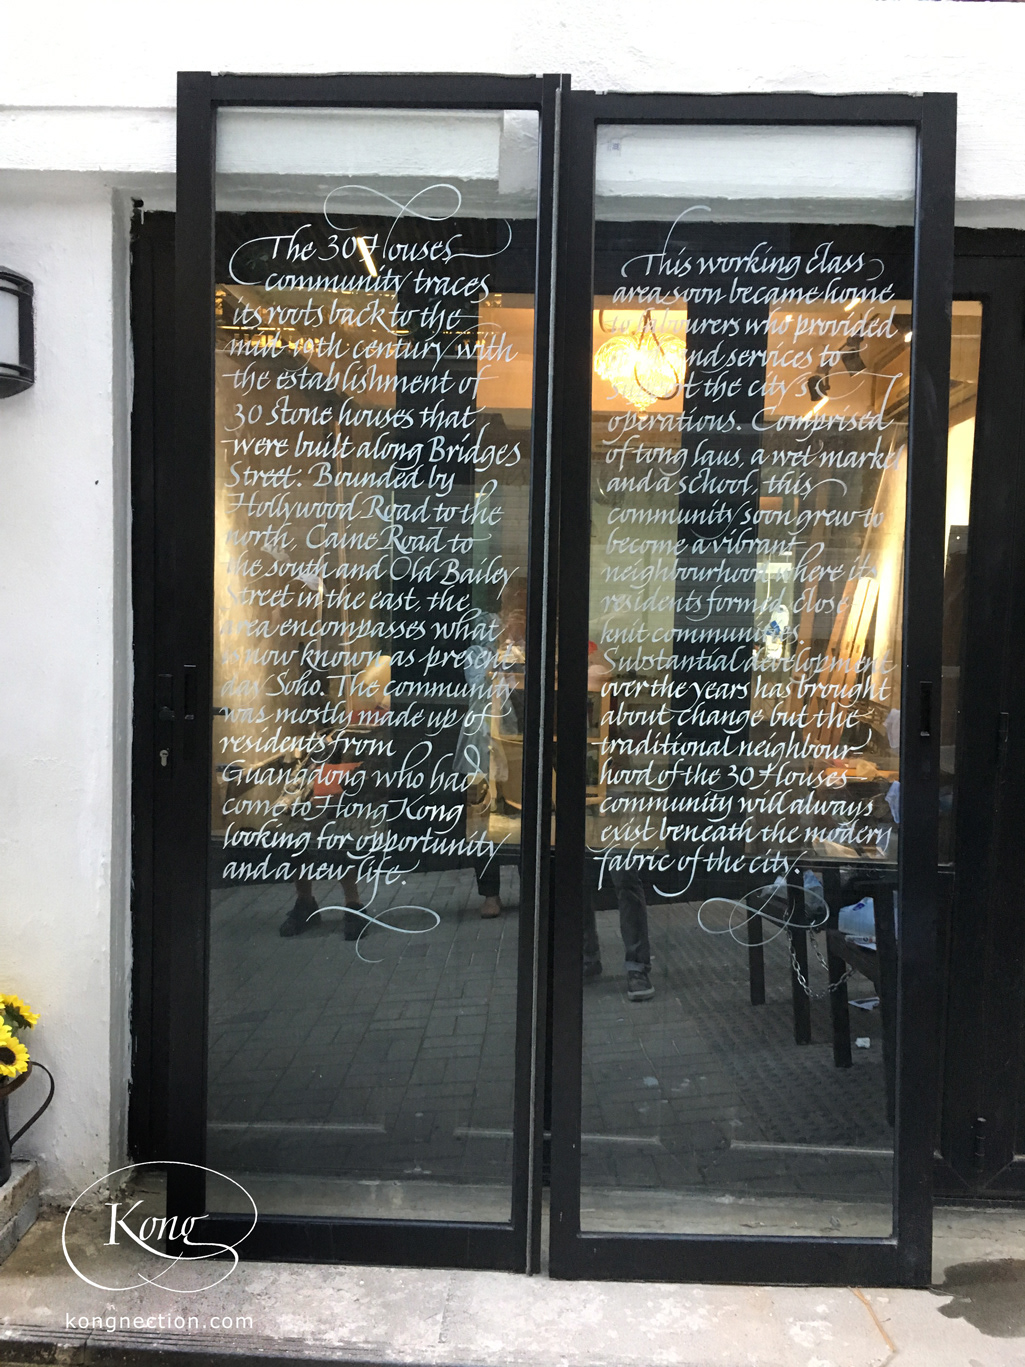 The 30 Houses
community traces
its roots back to the
mid 19th century with
the establishment of
30 stone houses that
were built along Bridges
Street. Bounded by
Hollywood Road to the
north, Caine Road to
the south and Old Bailey
Street in the east, the
area encompasses what
is now known as present
day Soho. The community
was mostly made up of
residents from
Guangdong who had
come to Hong Kong
looking for opportunity
and a new life.
This working class
area soon became home
to labourers who provided
and services to
the city's
operations. Comprised
of tong laus, a wet market
and a school, this
community soon grew to
become a vibrant
neighbourhood where its
residents formed close
knit communities.
Substantial development
over the years has brought
about change but the
traditional neighbour
hood of the 30 Houses
community will always
exist beneath the modern
fabric of the city.
Kong
kongnection.com